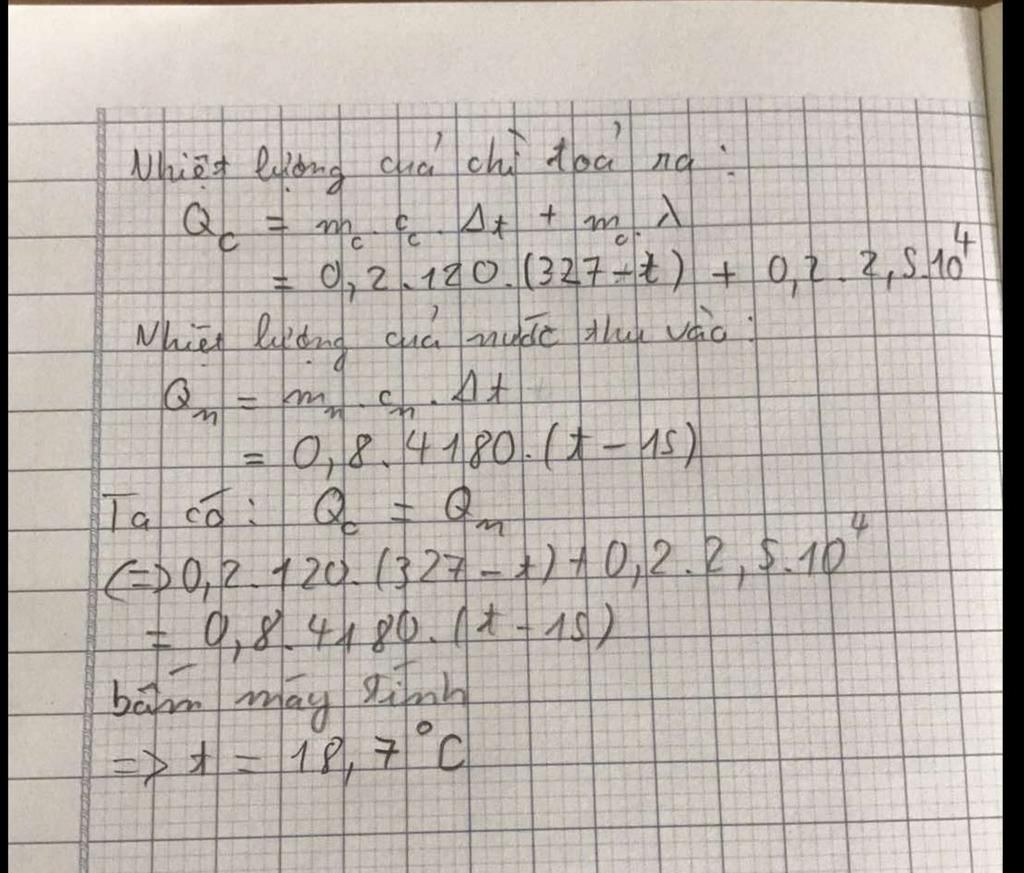 Nhiệt lượng của chì toả ra :
Q_c = m_c . c_c . Δt + m_c . λ
= 0,2 . 120 . (327 - t) + 0,2 . 2,5 . 10^4
Nhiệt lượng của nước thu vào :
Q_n = m_n . c_n . Δt
= 0,8 . 4180 . (t - 15)
Ta có : Q_c = Q_n
(=) 0,2 . 120 . (327 - t) + 0,2 . 2,5 . 10^4
= 0,8 . 4180 . (t - 15)
bấm máy tính
=> t = 18,7 °C